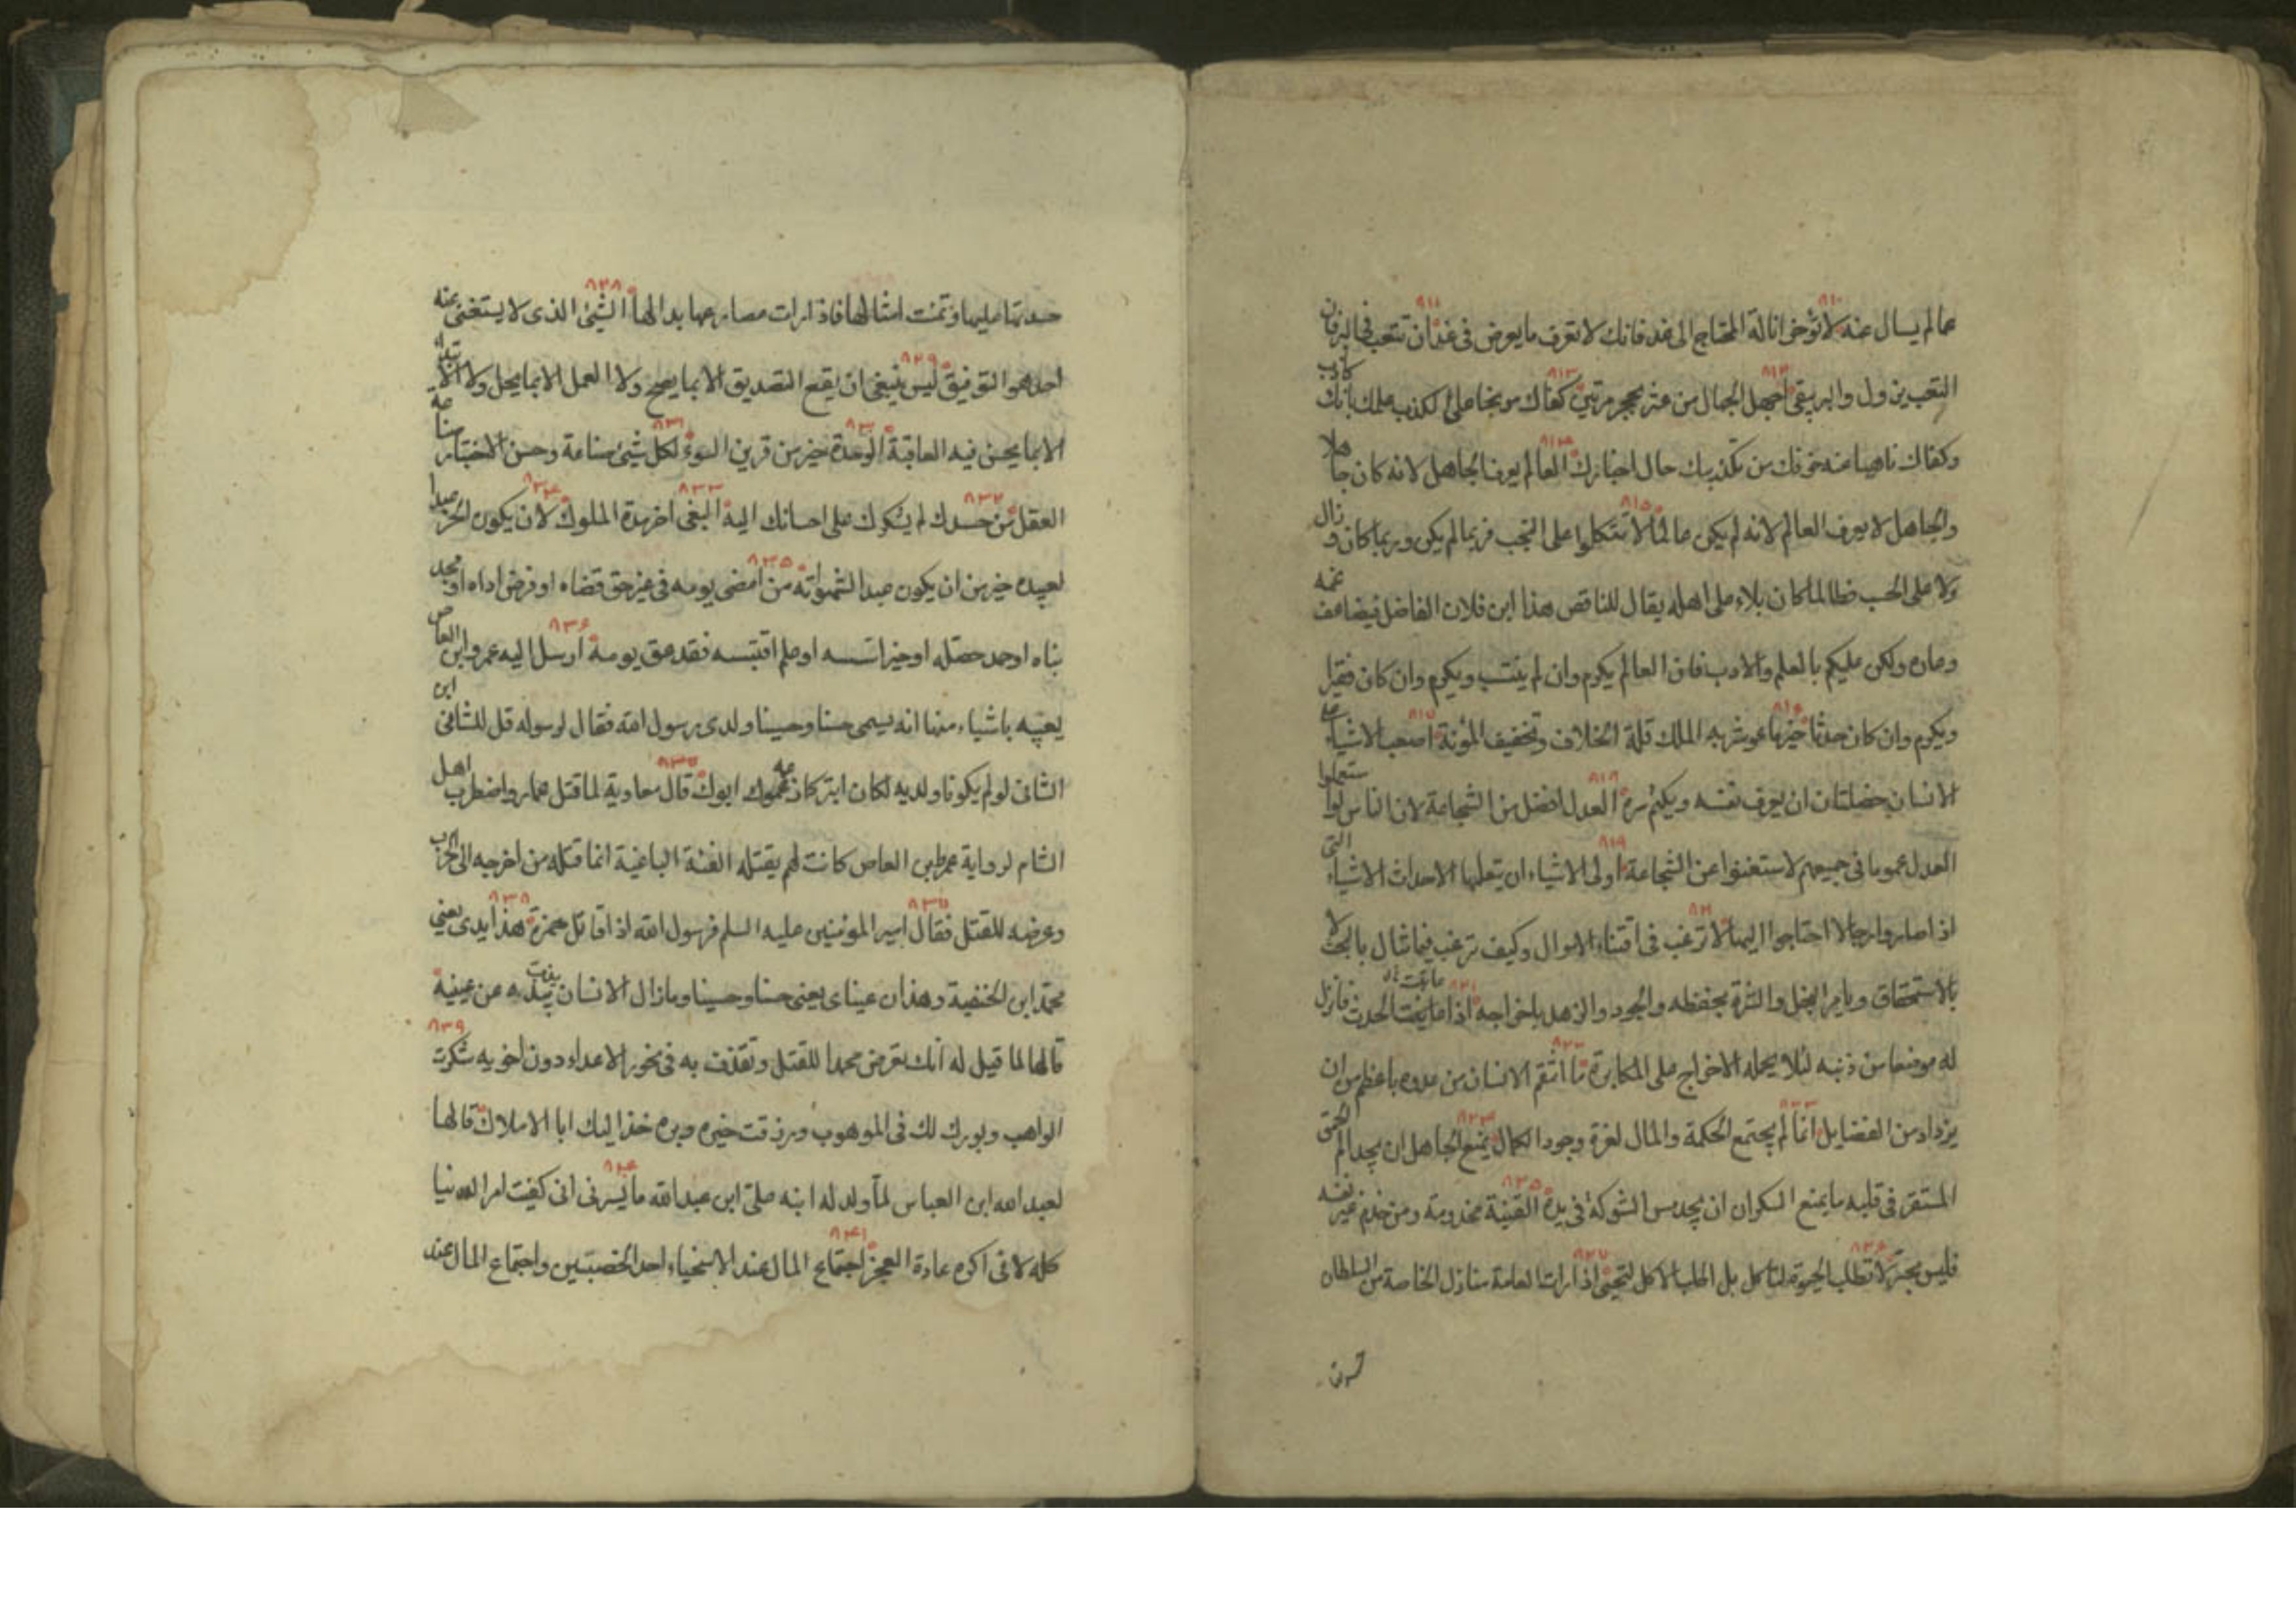 عالم يسال عنه ٨١٠ لا تؤخر انالة المحتاج الى غد فانك لا تعرف ما يعرض فى غد ٨١١ ان تتعب فى البر فان
التعب يزول والبر يبقى ٨١٢ اجهل الجهال من عثر بحجر مرتين ٨١٣ كفاك موبخا على الكذب علمك بانك كاذب
وكفاك ناهيا عنه خوفك من تكذيبك حال اخبارك ٨١٤ العالم يعرف الجاهل لانه كان جاهلا
والجاهل لا يعرف العالم لانه لم يكن عالما ٨١٥ لا تتكلوا على البخت فربما لم يكن وربما كان وزال
ولا على الحسب فطالما كان بلاء على اهله يقال للناقص هذا ابن فلان الفاضل فيتضاعف غمه
وعاره ولكن عليكم بالعلم والادب فان العالم يكرم وان لم ينتسب ويكرم وان كان فقيرا
ويكرم وان كان حدثا ٨١٦ خير ما عوشر به الملك قلة الخلاف وتخفيف المؤنة ٨١٧ اصعب الاشياء على
الانسان خصلتان ان يعرف نفسه ويكتم سره ٨١٨ العدل افضل من الشجاعة لان الناس لو استعملوا
العدل عموما فى جميعهم لاستغنوا عن الشجاعة ٨١٩ اولى الاشياء ان يتعلمها الاحداث الاشياء التى
اذا صاروا رجالا احتاجوا اليها ٨٢٠ لا ترغب فى اقتناء الاموال وكيف ترغب فيما تنال بالبخت لا
بالاستحقاق ويامر البخل والشره بحفظه والجود والزهد باخراجه ٨٢١ اذا عاتبت الحدث فاترك
له موضعا من ذنبه لئلا يحمله الاخراج على المكابرة ٨٢٢ ما انتقم الانسان من عدوه باعظم من ان
يزداد من الفضايل ٨٢٣ انما لم يجتمع الحكمة والمال لعزة وجود الكمال ٨٢٤ يمنع الجاهل ان يجد الم الحمق
المستقر فى قلبه ما يمنع السكران ان يجد مس الشوكة فى يده ٨٢٥ القنية مخدومة ومن خدم غير نفسه
فليس بحر ٨٢٦ لا تطلب الحيوة لتاكل بل اطلب الاكل لتحيى ٨٢٧ اذا رات العامة منازل الخاصة من السلطان
حسدتها عليها وتمنت امثالها فاذا رات مصارعها بدا لها ٨٢٨ الشئ الذى لا يستغنى عنه
احد هو التوفيق ٨٢٩ ليس ينبغى ان يقع التصديق الا بما يصح ولا العمل الا بما يحل ولا الابتداء
الا بما يحسن فيه العاقبة ٨٣٠ الوحدة خير من قرين السوء ٨٣١ لكل شئ صناعة وحسن الاختيار صناعة
العقل ٨٣٢ من حسدك لم يشكرك على احسانك اليه ٨٣٣ البغى اخر مدة الملوك ٨٣٤ لان يكون الحر عبدا
لعبيده خير من ان يكون عبدا لشهواته ٨٣٥ من امضى يومه فى غير حق قضاه او فرض اداه او مجد
بناه او حمد حصله او خير اسسه او علم اقتبسه فقد عق يومه ٨٣٦ ارسل اليه عمرو ابن العاص
يعيبه باشياء منها انه يسمى حسنا وحسينا ولدى رسول الله فقال لرسوله قل للشانئ ابن
الشانئ لو لم يكونا ولديه لكان ابتر كما زعمه ابوك ٨٣٧ قال معاوية لما قتل عمار واضطرب اهل
الشام لرواية عمرو بن العاص كانت لهم يقتله الفئة الباغية انما قتله من اخرجه الى الحرب
وعرضه للقتل فقال امير المؤمنين عليه السلم فرسول الله اذا قاتل حمزة ٨٣٨ هذا يدى يعنى
محمد ابن الحنفية وهذان عيناى يعنى حسنا وحسينا وما زال الانسان يذب بيده عن عينيه
قالها لما قيل له انك تعرض محمدا للقتل وتقذف به فى نحور الاعداء دون اخويه ٨٣٩ شكرت
الواهب وبورك لك فى الموهوب ورزقت خيره وبره خذ اليك ابا الاملاك قالها
لعبد الله ابن العباس لما ولد له ابنه على ابن عبد الله ٨٤٠ ما يسرنى انى كفيت امر الدنيا
كله لانى اكره عادة العجز ٨٤١ اجتماع المال عند الاسخياء احد الخصبين واجتماع المال عند